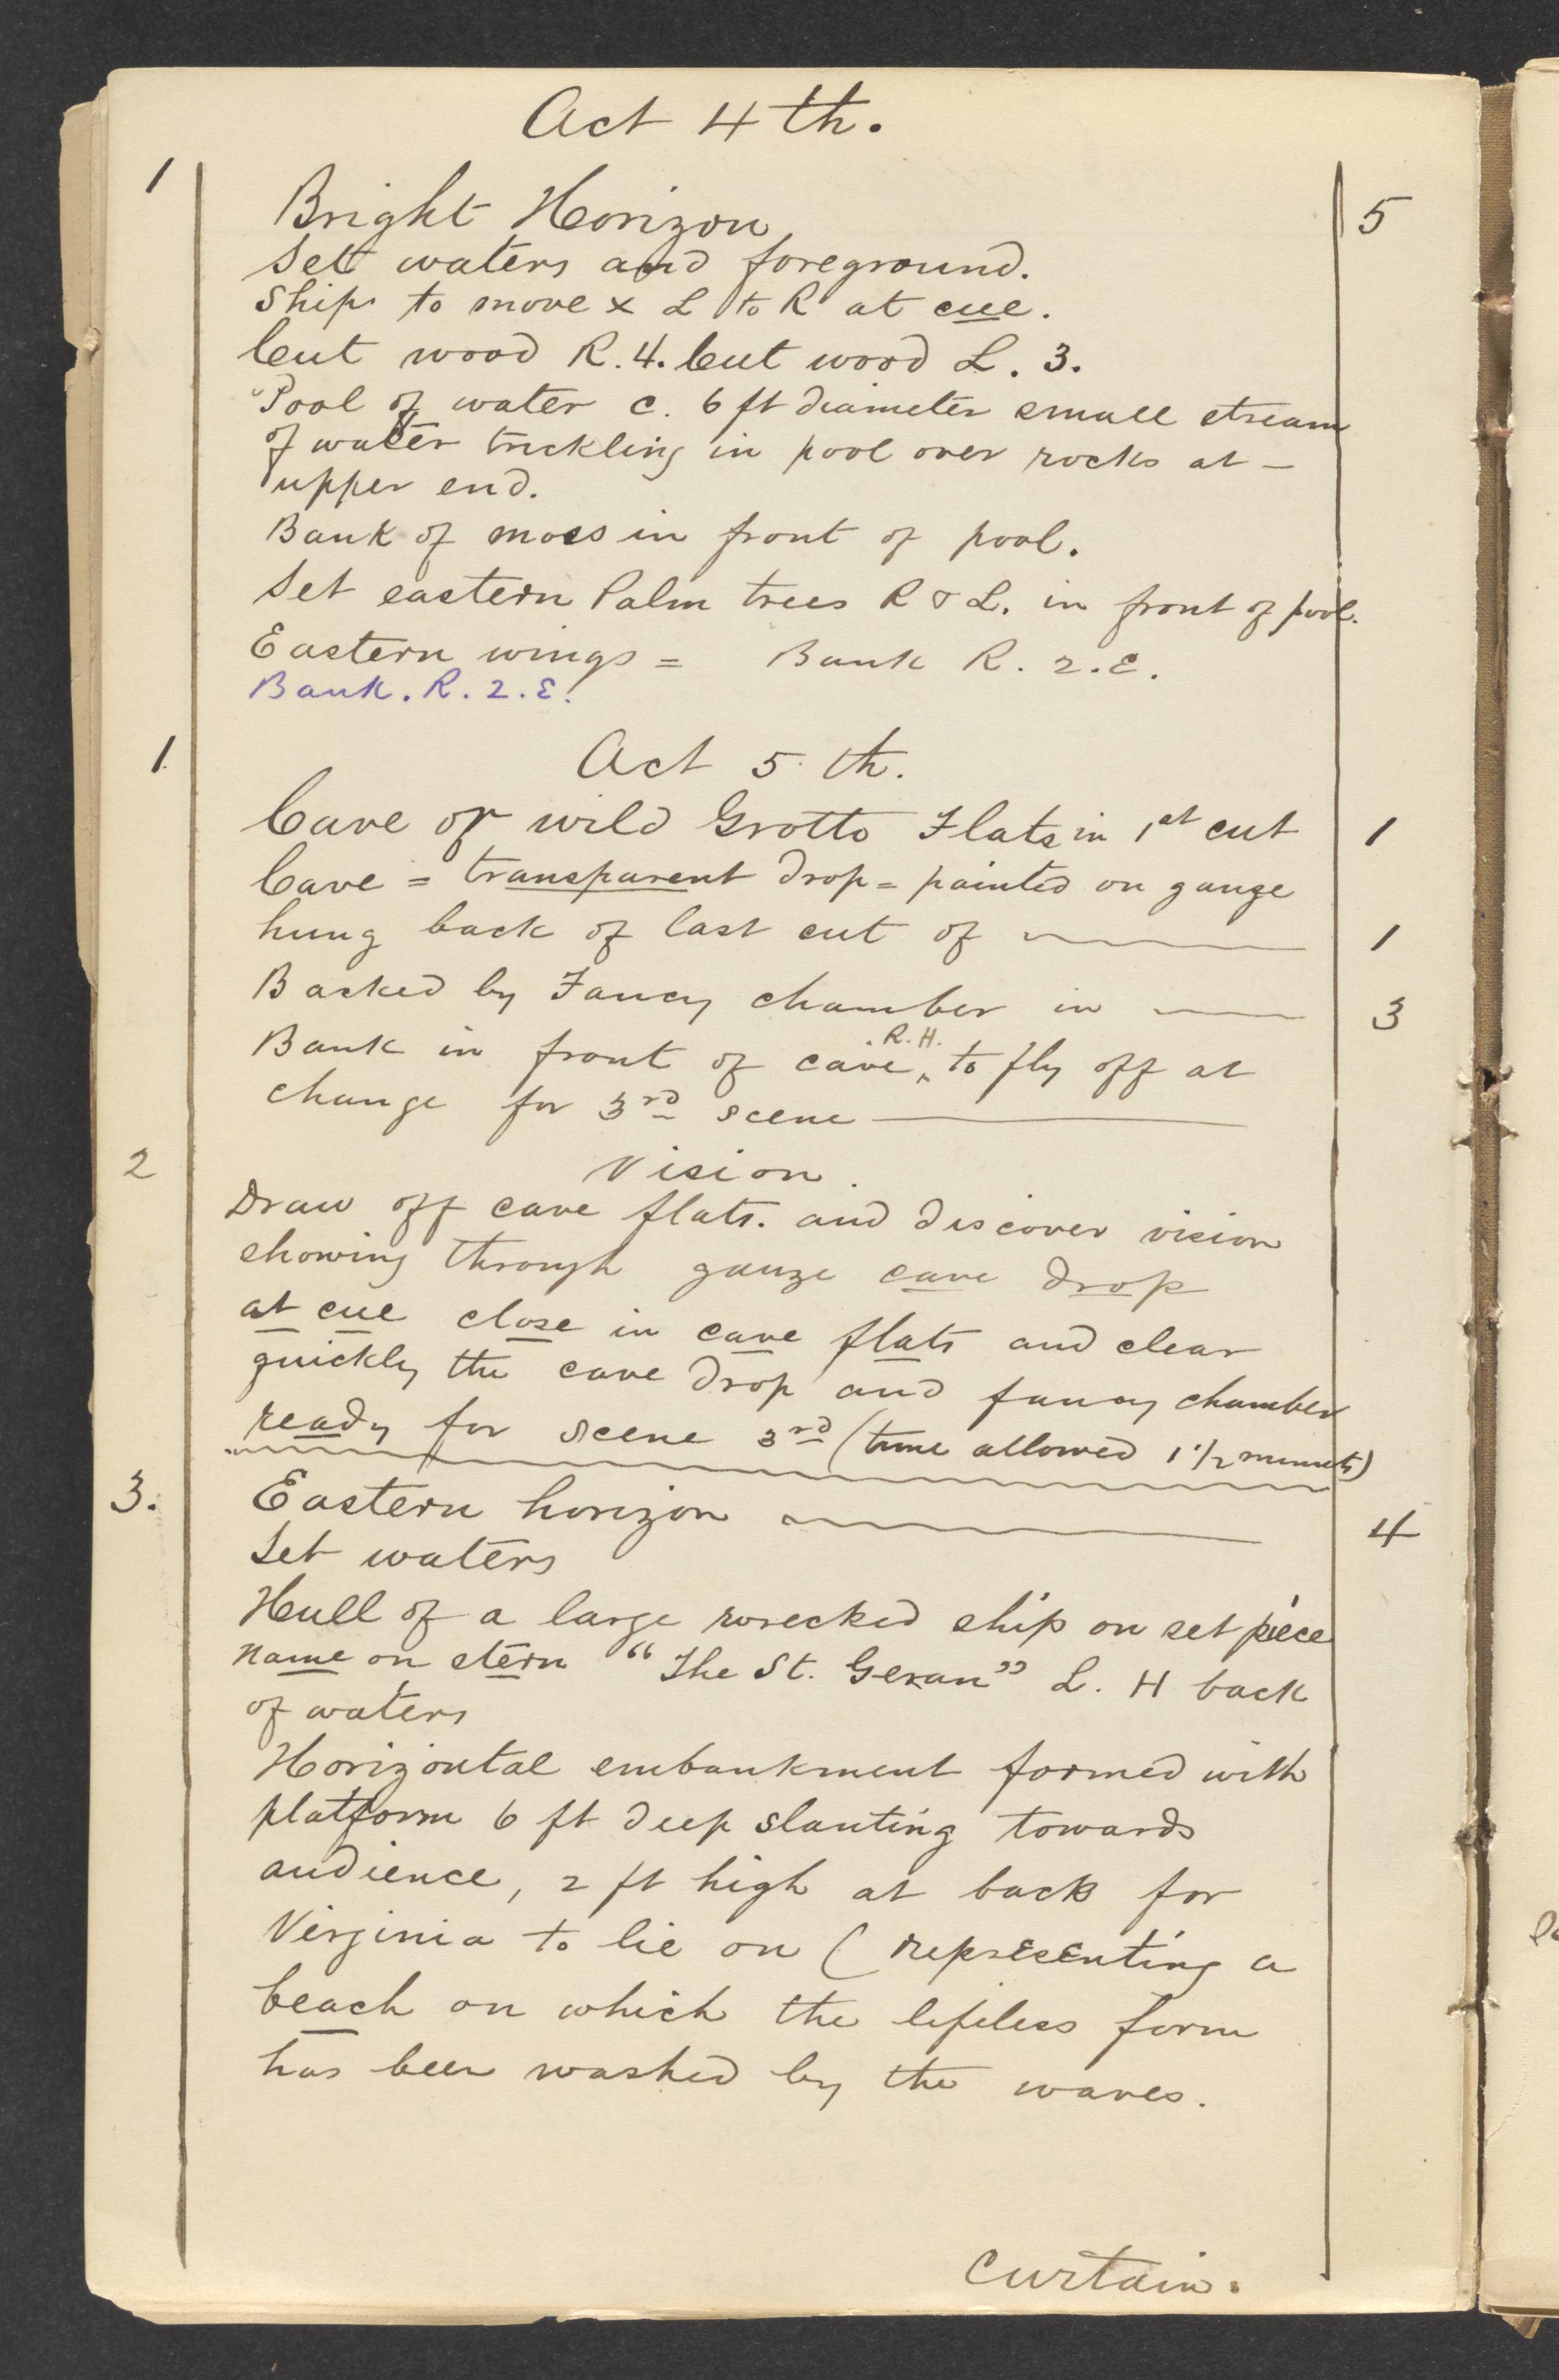 Act 4th.
1 Bright Horizon 5
Set waters and foreground.
Ship to move x L to R at cue.
Cut wood R. 4. Cut wood L. 3.
Pool of water c. 6 ft diameter small stream
of water trickling in pool over rocks at –
upper end.
Bank of moss in front of pool.
Set eastern Palm trees R & L. in front of pool.
Eastern wings = Bank R. 2. E.
Bank. R. 2. E.
1. Act 5 th.
Cave or wild Grotto Flats in 1st cut 1
Cave = transparent drop = painted on gauze
hung back of last cut of 1
Backed by Fancy chamber in 3
Bank in front of cave ^ R. H. to fly off at
change for 3rd scene
2 Vision.
Draw off cave flats. and discover vision
showing through gauze cave drop
at cue close in cave flats and clear
quickly the cave drop and fancy chamber
ready for scene 3rd (time allowed 1 1/2 minuets)
3. Eastern horizon 4
Set waters
Hull of a large wrecked ship on set piece
name on stern "The St. Geran" L. H back
of waters
Horizontal embankment formed with
platform 6 ft deep slanting towards
audience, 2 ft high at back for
Virginia to lie on ( representing a
beach on which the lifeless form
has been washed by the waves.
Curtain.